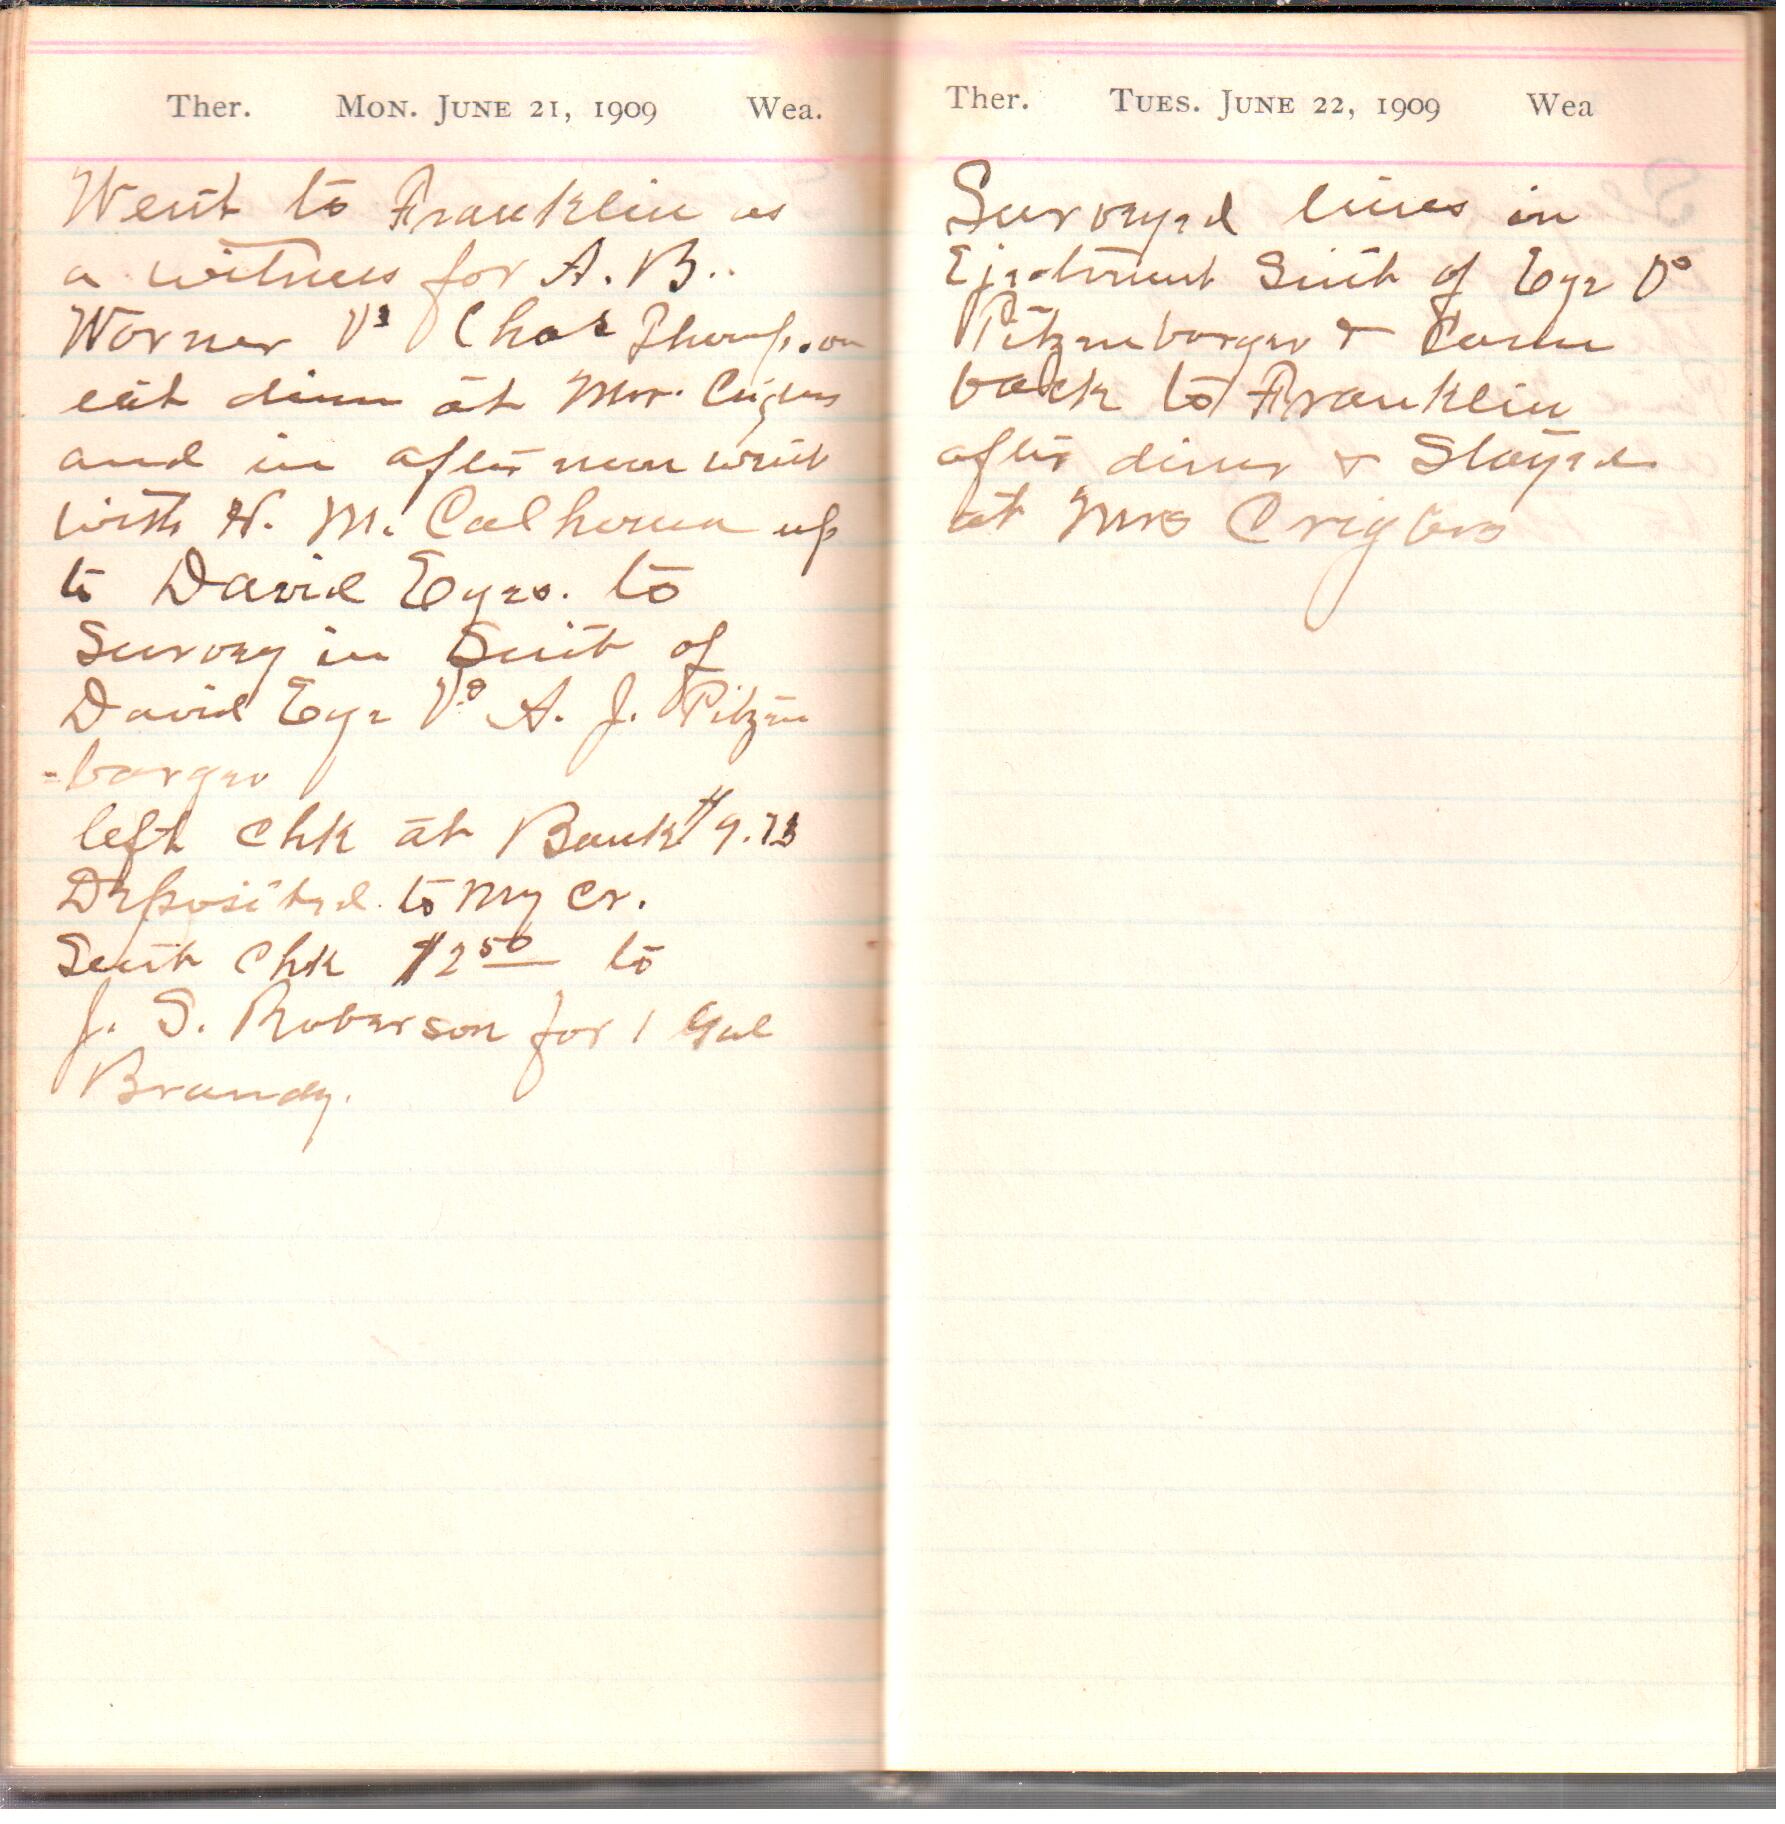 Ther. MON. JUNE 21, 1909 Wea.
Went to Franklin as
a witness for A. B.
Worner Vs Chas Thompson
eat dinn at Mrs.
and in after noon went
with H. M. Calhoun up
to David Eyes. to
Survey in Suit of
David Eye Vs A. J. Pitzen
-barger
left chk at Bank $9.73
Deposited to my Cr.
Sent chk $2 50 to
J. S. Roberson for 1 Gal
Brandy.
Ther. TUES. JUNE 22, 1909 Wea
Surveyed lines in
Ejectment Suit of Eye Vs
Pitzenbarger & Came
back to Franklin
after dinner & Stayed
at Mrs Criglers